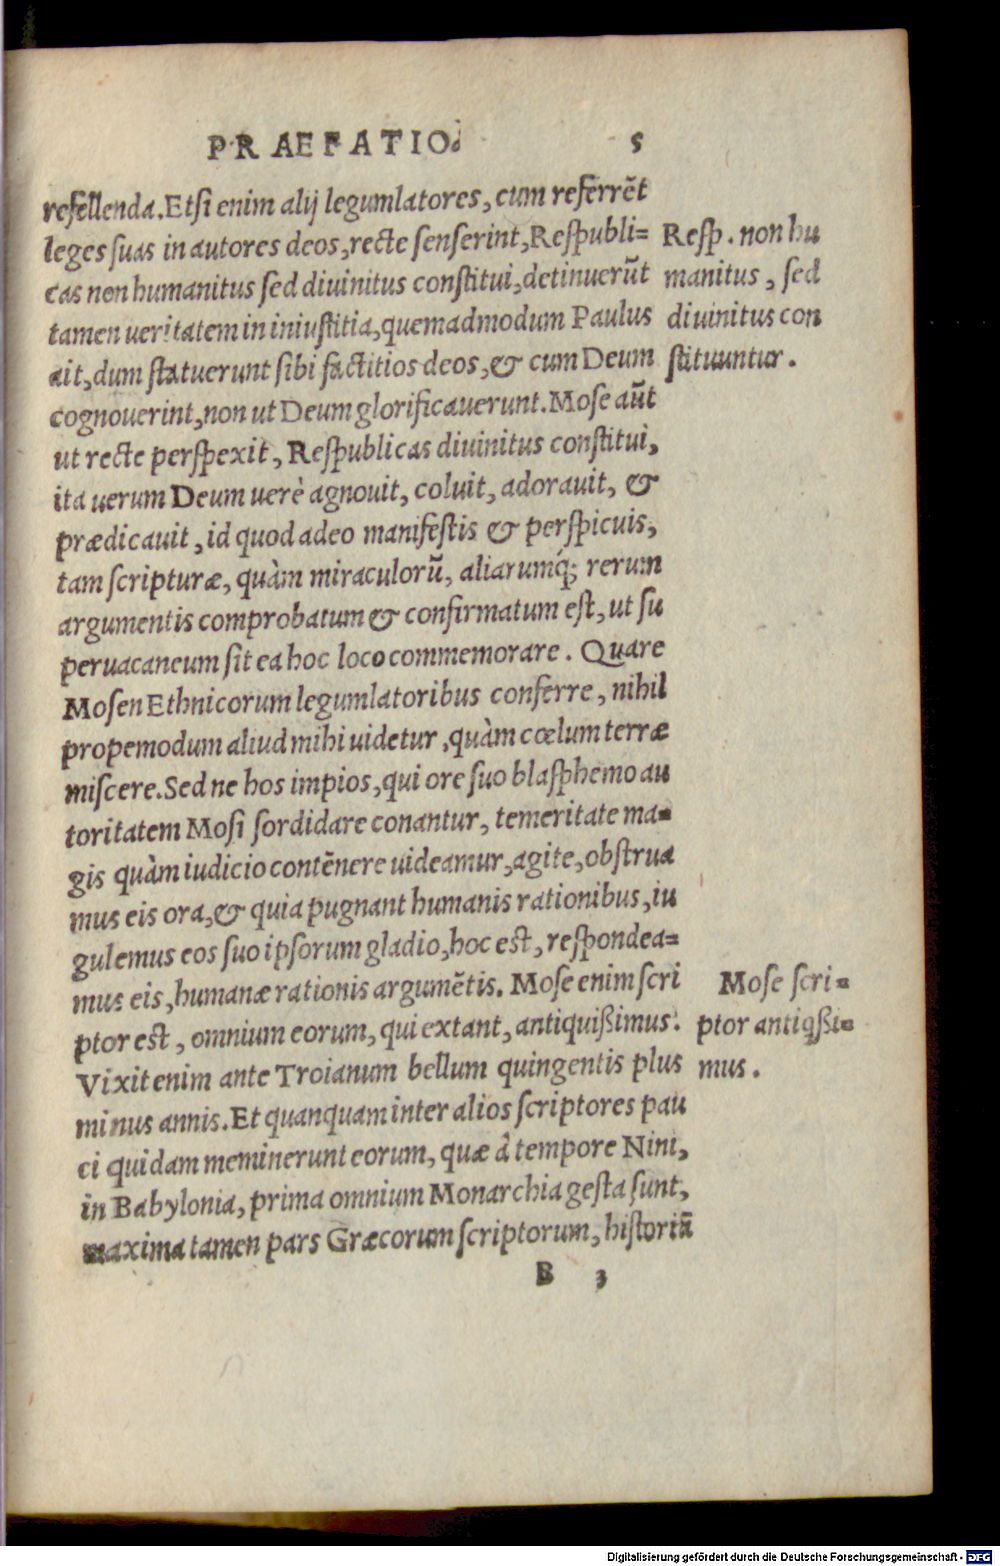 PRAEFATIO. 5
refellenda. Etsi enim alij legumlatores, cum referrēt
leges suas in autores deos, recte senserint, Respubli=
cas non humanitus sed diuinitus constitui, detinuerūt
tamen ueritatem in iniustitia, quemadmodum Paulus
ait, dum statuerunt sibi factitios deos, & cum Deum
cognouerint, non ut Deum glorificauerunt. Mose aūt
ut recte perspexit, Respublicas diuinitus constitui,
ita uerum Deum uerè agnouit, coluit, adorauit, &
prædicauit, id quod adeo manifestis & perspicuis,
tam scripturæ, quàm miraculorū, aliarumq́; rerum
argumentis comprobatum & confirmatum est, ut su
peruacaneum sit ea hoc loco commemorare. Quare
Mosen Ethnicorum legumlatoribus conferre, nihil
propemodum aliud mihi uidetur, quàm cœlum terræ
miscere. Sed ne hos impios, qui ore suo blasphemo au
toritatem Mosi sordidare conantur, temeritate ma=
gis quàm iudicio contēnere uideamur, agite, obstrua
mus eis ora, & quia pugnant humanis rationibus, iu
gulemus eos suo ipsorum gladio, hoc est, respondea=
mus eis, humanæ rationis argumētis. Mose enim scri
ptor est, omnium eorum, qui extant, antiquißimus.
Vixit enim ante Troianum bellum quingentis plus
minus annis. Et quanquam inter alios scriptores pau
ci quidam meminerunt eorum, quæ à tempore Nini,
in Babylonia, prima omnium Monarchia gesta sunt,
maxima tamen pars Græcorum scriptorum, historiā
B 3
Resp. non hu
manitus, sed
diuinitus con
stituuntur.
Mose scri=
ptor antiqßi=
mus.
Digitalisierung gefördert durch die Deutsche Forschungsgemeinschaft - DFG